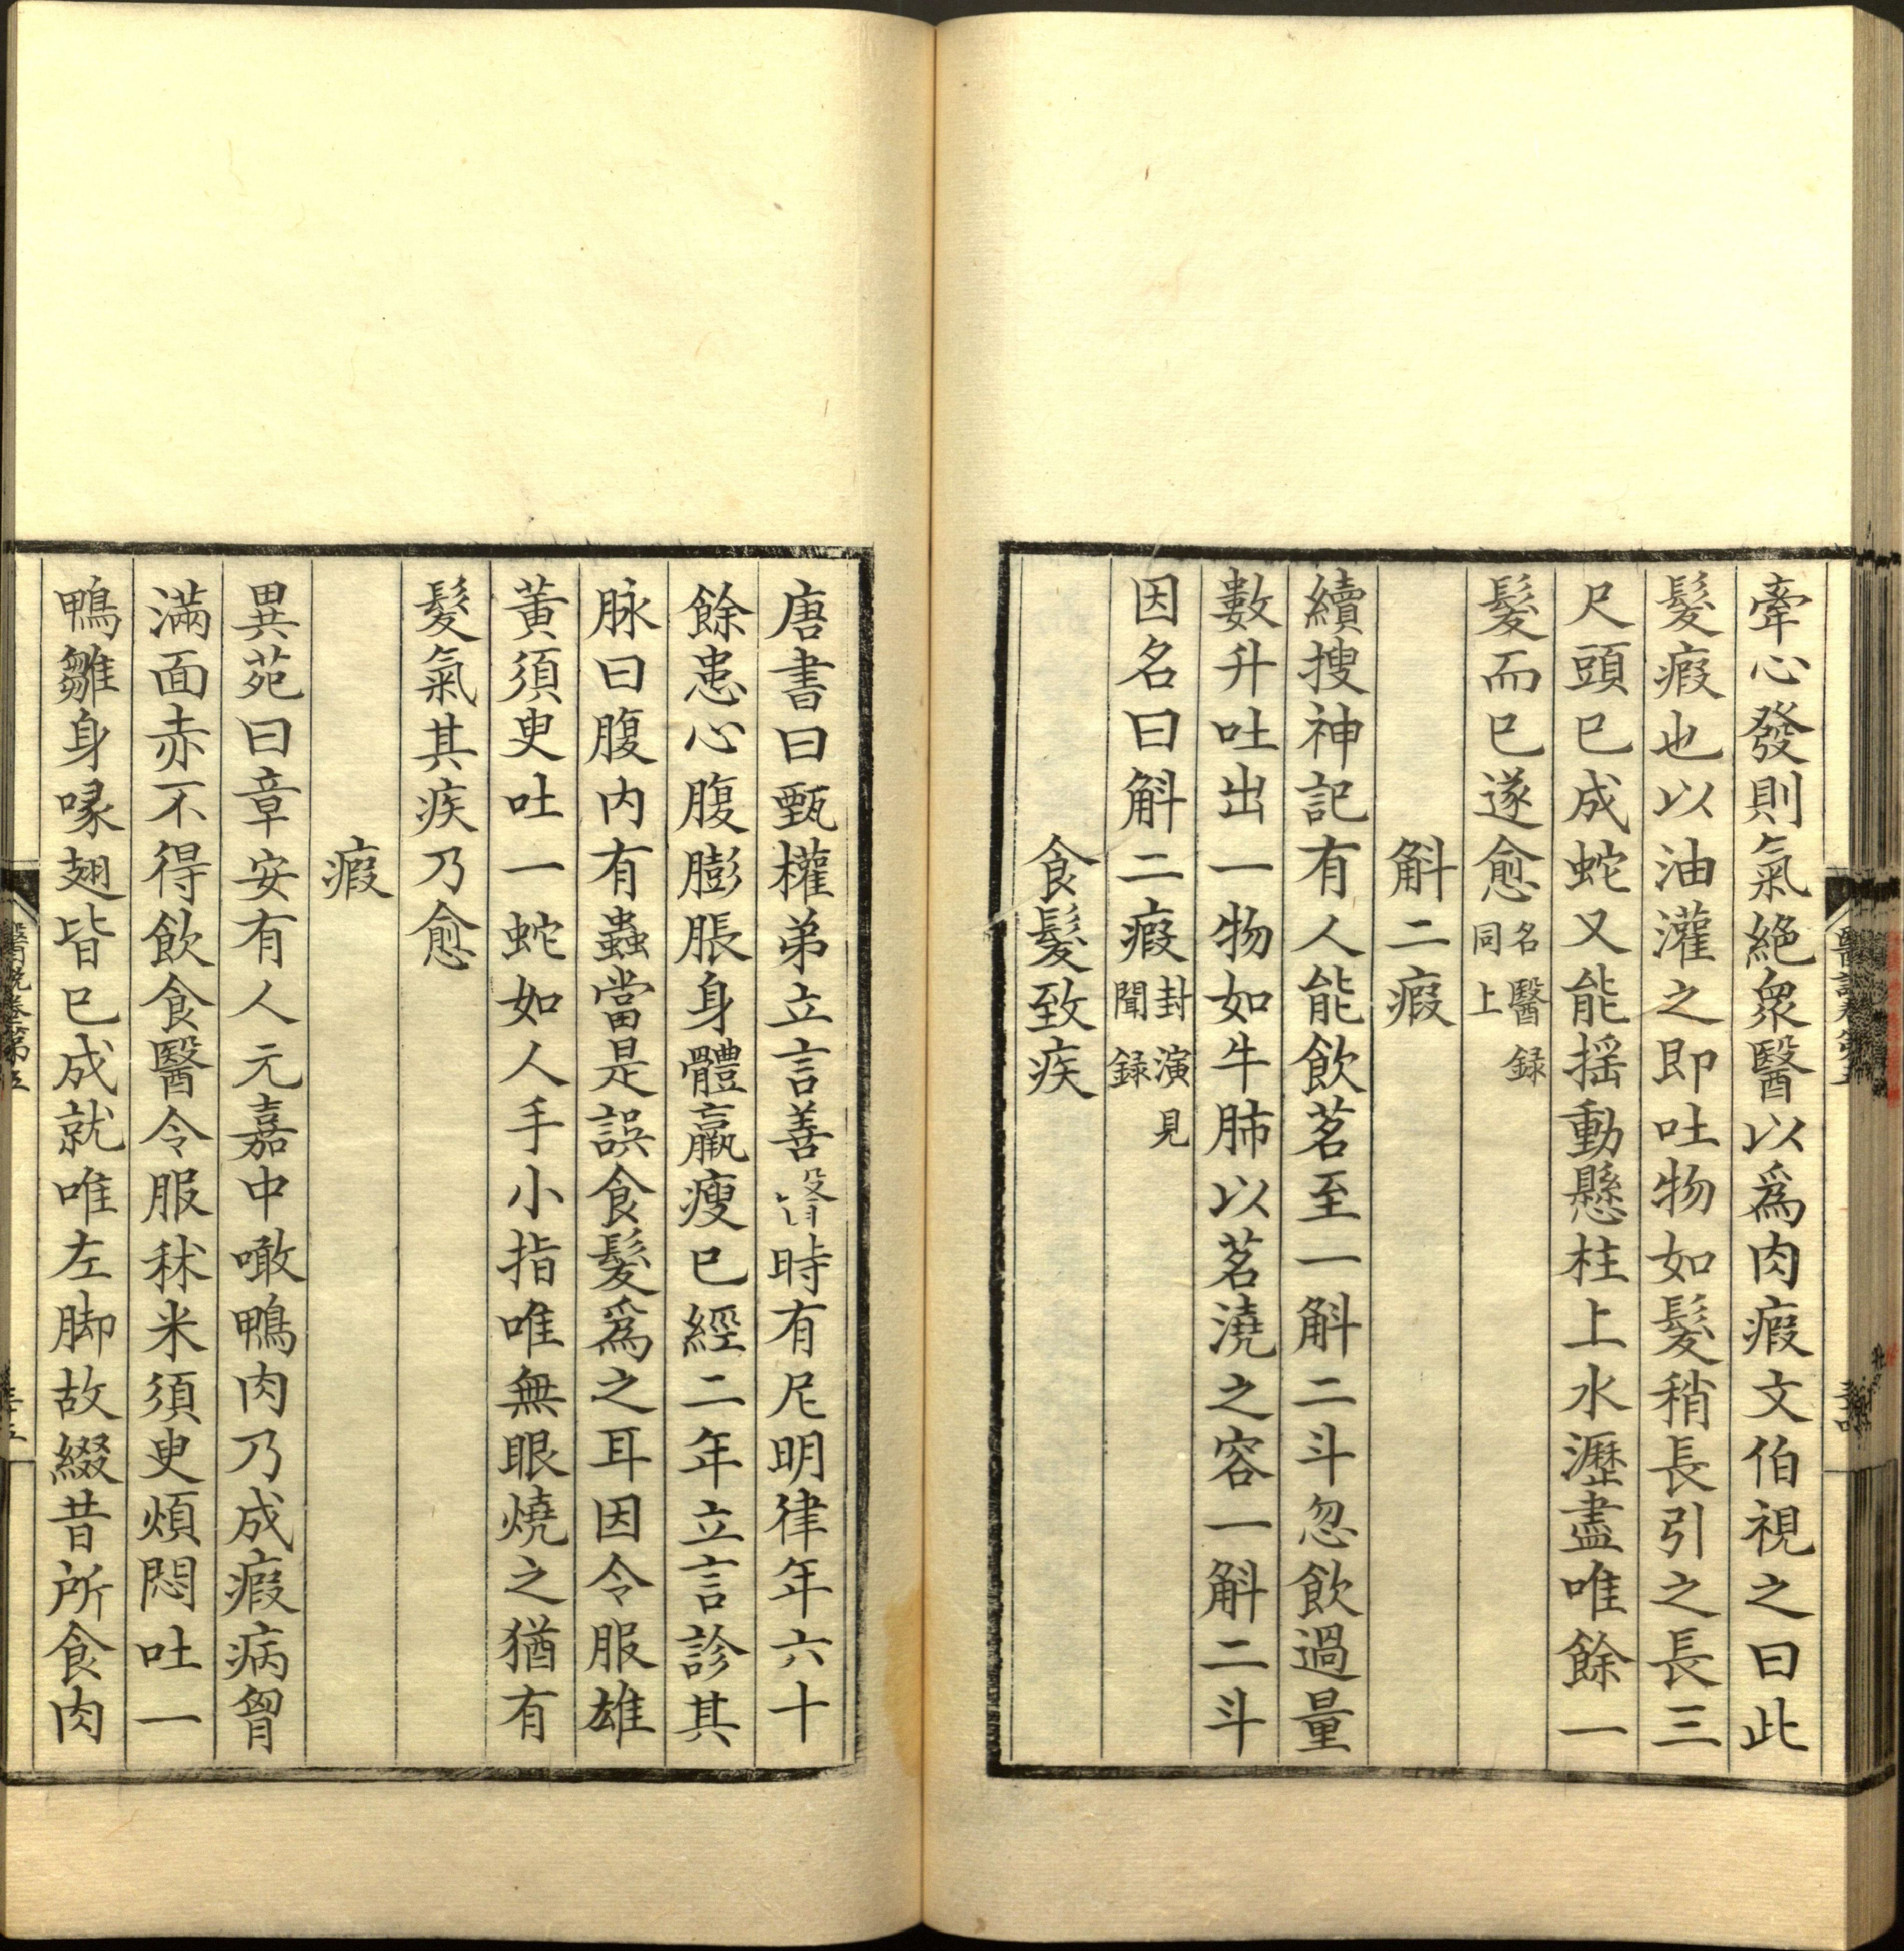 牽心發則氣絕衆醫以爲肉瘕文伯視之曰此
髮瘕也以油灌之即吐物如髮稍長引之長三
尺頭已成蛇又能揺動懸柱上水瀝盡唯餘一
髮而已遂愈名醫録同上
斛二瘕
續搜神記有人能飲茗至一斛二斗忽飲過量
數升吐出一物如牛肺以茗澆之容一斛二斗
因名曰斛二瘕封演見聞録
食髮致疾
唐書曰甄權弟立言善醫時有尼明律年六十
餘患心腹膨脹身體羸瘦已經二年立言診其
脉曰腹内有蟲當是誤食髮爲之耳因令服雄
黃須臾吐一蛇如人手小指唯無眼燒之猶有
髮氣其疾乃愈
瘕
異苑曰章安有人元嘉中噉鴨肉乃成瘕病胷
滿面赤不得飲食醫令服秫米須臾煩悶吐一
鴨雛身喙翅皆已成就唯左脚故綴昔所食肉
醫説卷第五